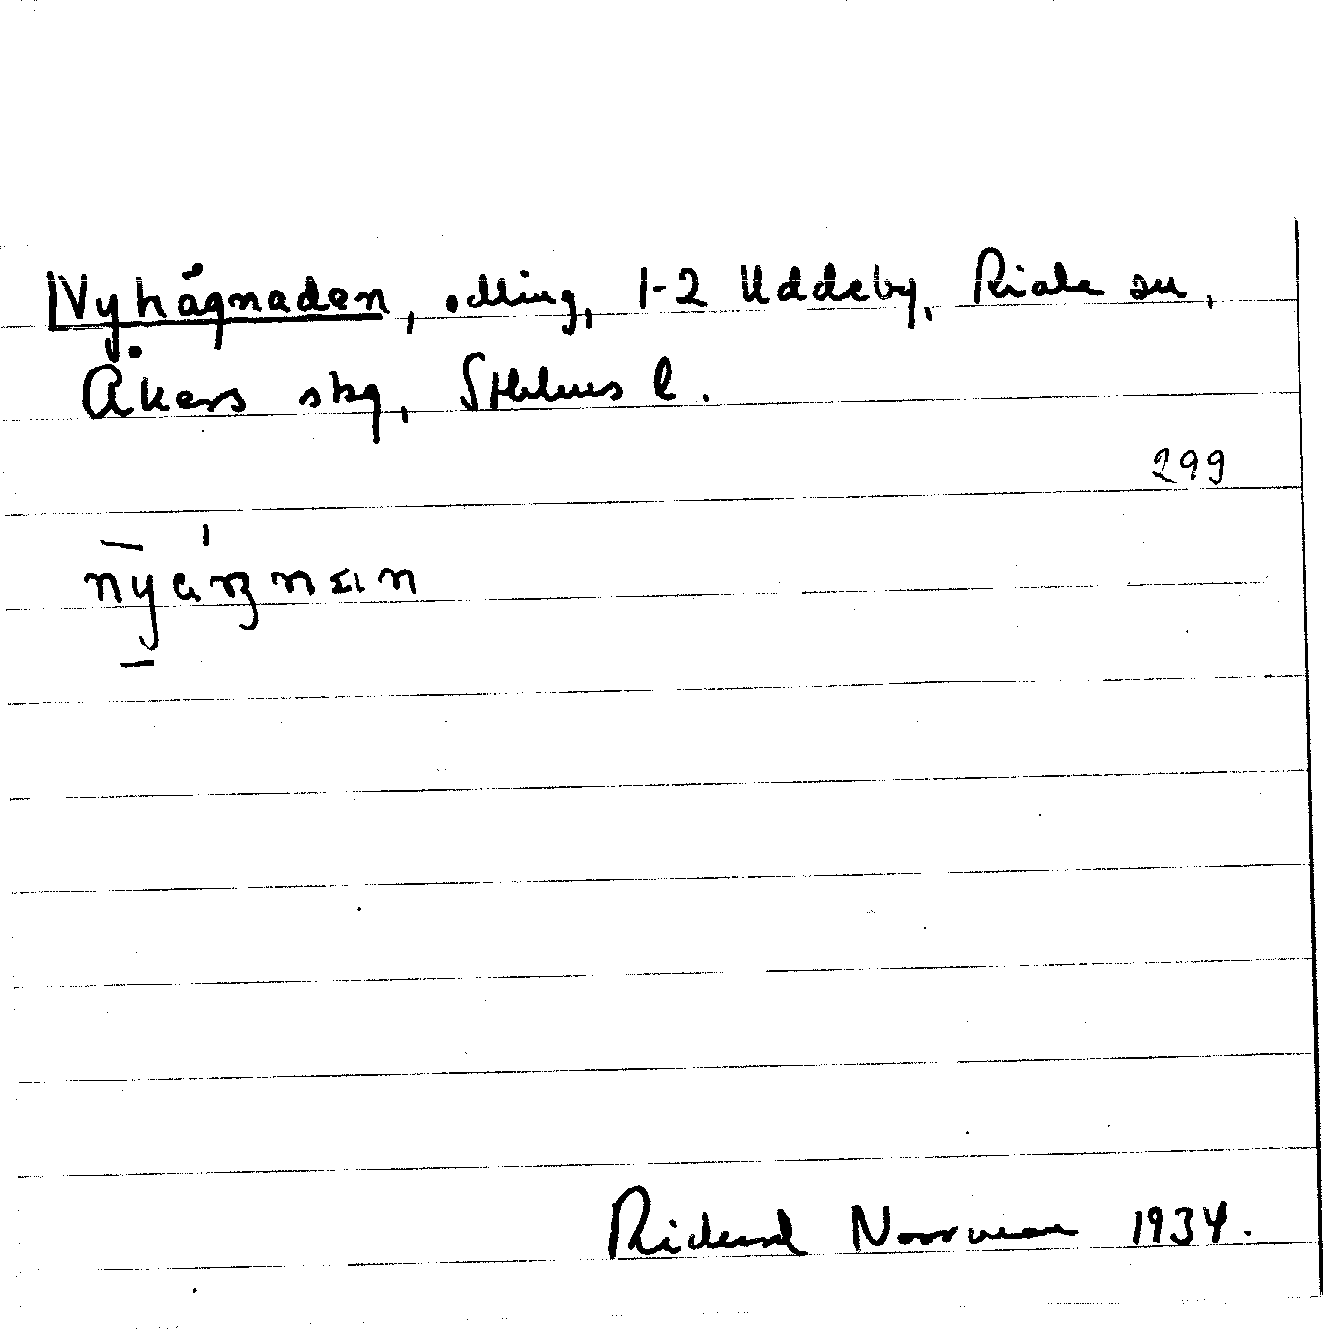 Nyhägnaden, odling, 1-2 Uddeby, Riala sn,
Åkers skg, Sthlms l.
299
Rickard Norrman 1934.